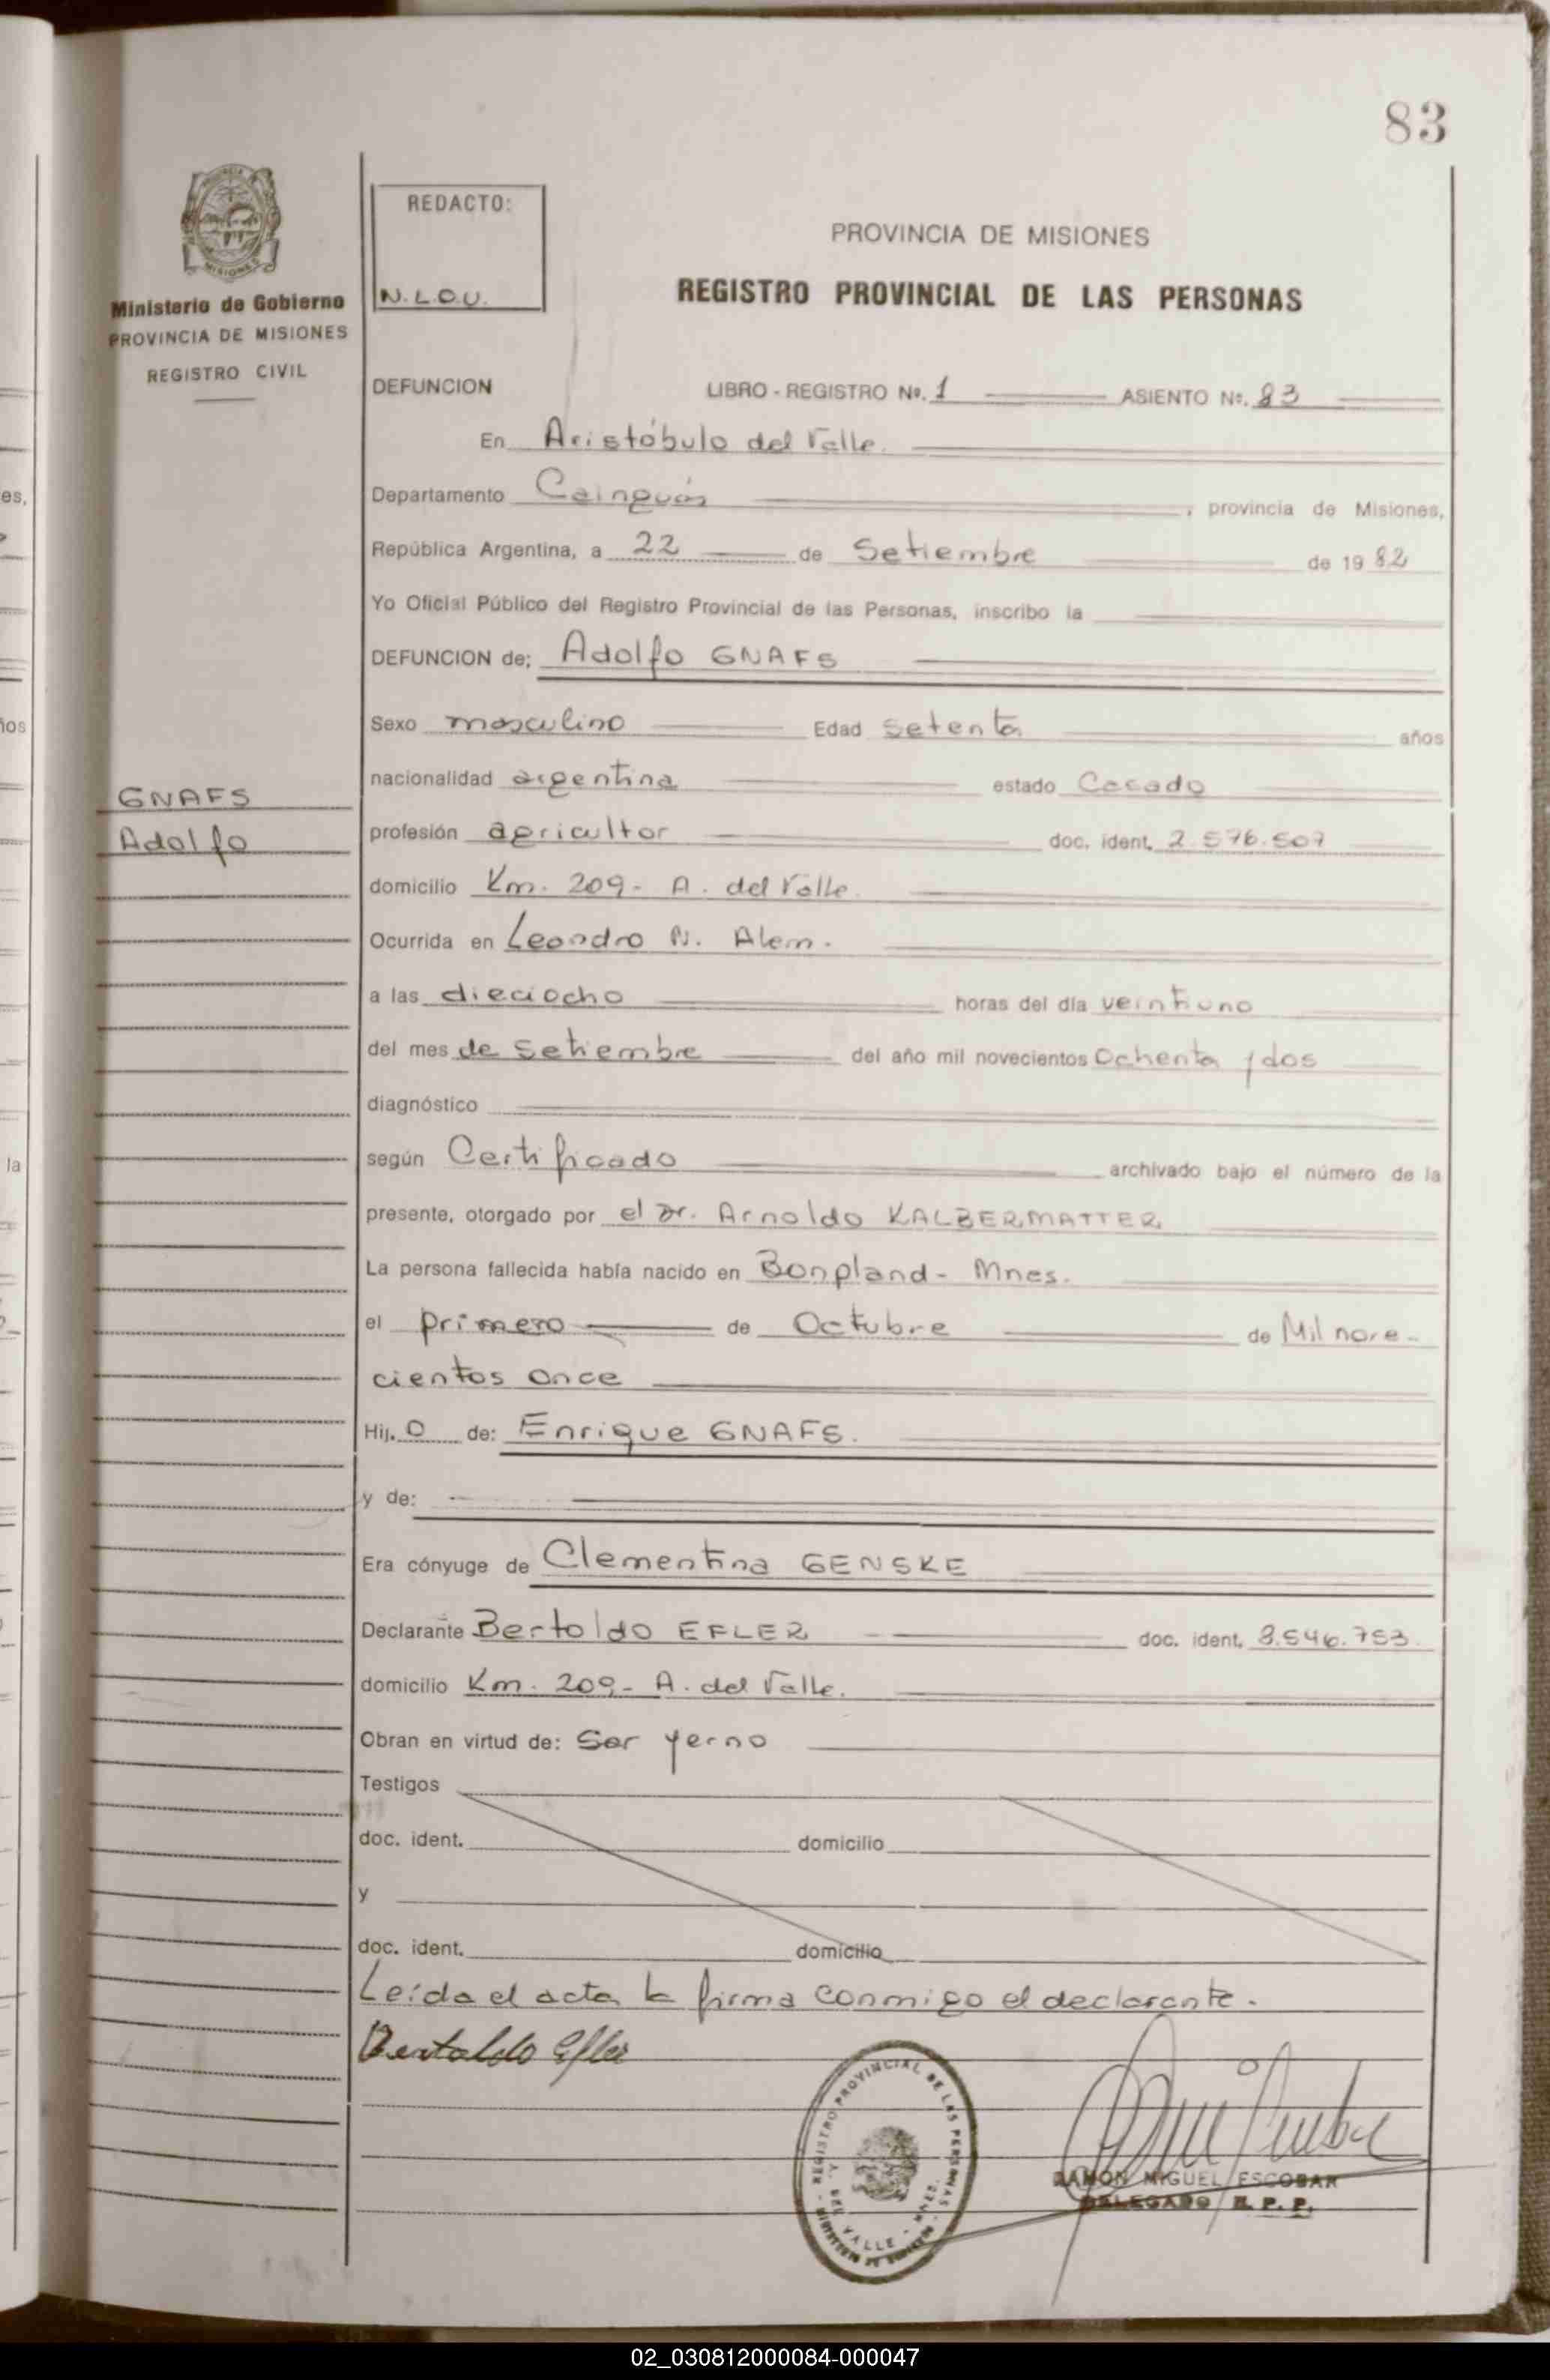 83
Ministerio de Gobierno
PROVINCIA DE MISIONES
REGISTRO CIVIL
REDACTO:
N.L.O.U.
PROVINCIA DE MISIONES
REGISTRO PROVINCIAL DE LAS PERSONAS
DEFUNCION LIBRO - REGISTRO No. 1 ASIENTO No. 83
En Aristóbulo del Valle.
Departamento Cainguás, provincia de Misiones,
República Argentina, a 22 de Setiembre de 1982
Yo Oficial Público del Registro Provincial de las Personas, inscribo la
DEFUNCION de: Adolfo GNAFS
Sexo masculino Edad setenta años
nacionalidad argentina estado Casado
GNAFS
Adolfo
profesión agricultor doc. ident. 2.576.507
domicilio Km. 209- A. del Valle.
Ocurrida en Leandro N. Alem.
a las dieciocho horas del día veintiuno
del mes de Setiembre del año mil novecientos Ochenta y dos
diagnóstico
según Certificado archivado bajo el número de la
presente, otorgado por el Dr. Arnoldo KALBERMATTER
La persona fallecida había nacido en Bonpland- Mnes.
el primero de Octubre de Mil nove-
cientos once
Hij. o de: Enrique GNAFS.
y de: -
Era cónyuge de Clementina GENSKE
Declarante Bertoldo EFLER doc. ident. 8.546.753.
domicilio Km. 209- A. del Valle.
Obran en virtud de: Ser yerno
Testigos
doc. ident. domicilio
y
doc. ident. domicilio
Leída el acta la firma conmigo el declarante.
Bertoldo Efler
REGISTRO PROVINCIAL DE LAS PERSONAS
DEL VALLE - MNES.
RAMON MIGUEL ESCOBAR
DELEGADO R. P. P.
02_030812000084-000047